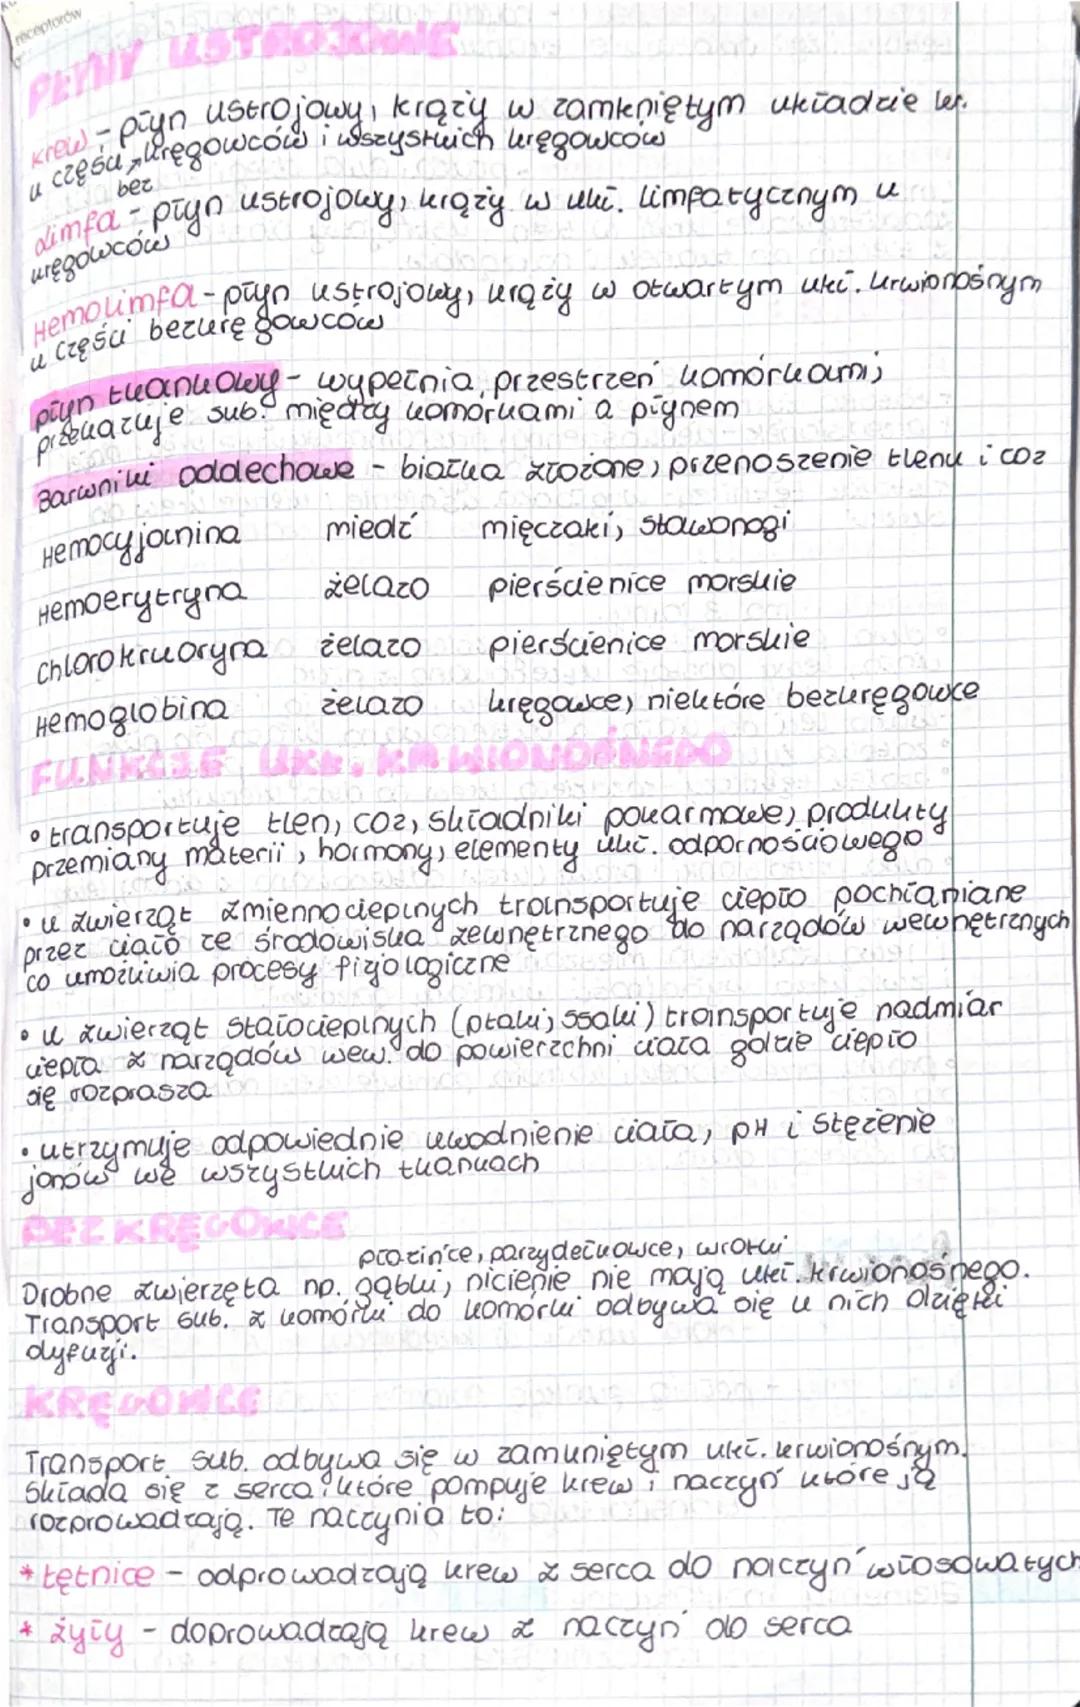 receptorów
PŁYNY USTROJOWE
krew - płyn ustrojowy, krąży w zamkniętym układzie kr.
u części bezkręgowców i wszystkich kręgowców
limfa - płyn ustrojowy, krąży w ukł. limfatycznym u
kręgowców
Hemolimfa - płyn ustrojowy, krąży w otwartym ukł. krwionośnym
u części bezkręgowców
płyn tkankowy - wypełnia przestrzeń komórkami;
przekazuje sub. między komórkami a płynem
Barwniki oddechowe - białka złożone, przenoszenie tlenu i CO2
Hemocyjanina miedź mięczaki, stawonogi
Hemoerytryna żelazo pierścienice morskie
chlorokruoryna żelazo pierścienice morskie
Hemoglobina żelazo kręgowce, niektóre bezkręgowce
FUNKCJE UKŁ. KRWIONOŚNEGO
• transportuje tlen, CO2, składniki pokarmowe, produkty
przemiany materii, hormony, elementy ukł. odpornościowego
• u zwierząt zmiennocieplnych transportuje ciepło pochłaniane
przez ciało ze środowiska zewnętrznego do narządów wewnętrznych
co umożliwia procesy fizjologiczne
• u zwierząt stałocieplnych (ptaki, ssaki) transportuje nadmiar
ciepła z narządów wew. do powierzchni ciała gdzie ciepło
się rozprasza
• utrzymuje odpowiednie uwodnienie ciała, pH i stężenie
jonów we wszystkich tkankach
BEZKRĘGOWCE
płazińce, parzydełkowce, wrotki
Drobne zwierzęta np. gąbki, nicienie nie mają ukł. krwionośnego.
Transport sub. z komórki do komórki odbywa się u nich dzięki
dyfuzji.
KRĘGOWCE
Transport sub. odbywa się w zamkniętym ukł. krwionośnym.
Składa się z serca które pompuje krew i naczyń które ją
rozprowadzają. Te naczynia to:
* tętnice - odprowadzają krew z serca do naczyń włosowatych
* żyły - doprowadzają krew z naczyń do serca